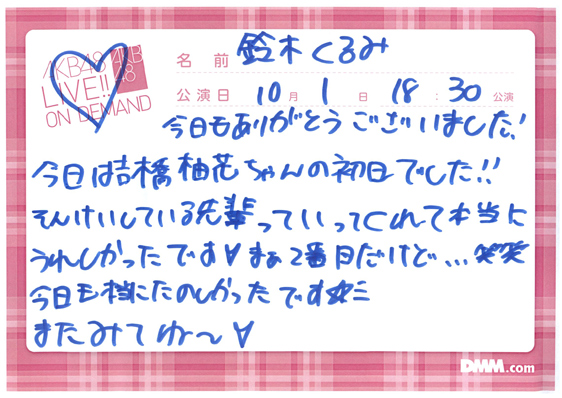 AKB48
LIVE!!
ON DEMAND
AKB
48
名前 鈴木くるみ
公演日 10月1日 18:30公演
今日もありがとうございました!
今日は吉橋柚花ちゃんの初日でした!!
そんけいしている先輩っていってくれて本当に
うれしかったです∀まぁ2番目だけど...笑笑
今日も本当にたのしかったです
またみてね〜∀
DMM.com